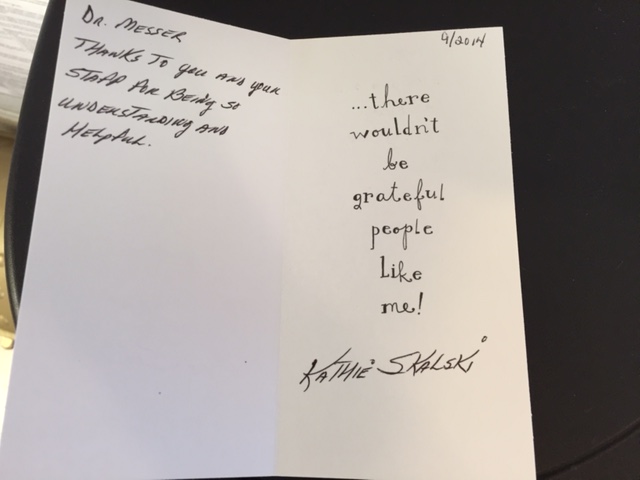 DR. MESSER
THANKS TO YOU AND YOUR
STAFF FOR BEING SO
UNDERSTANDING AND
HELPFUL.
9/2014
...there
wouldn't
be
grateful
people
like
me!
KATHIE SKALSKI